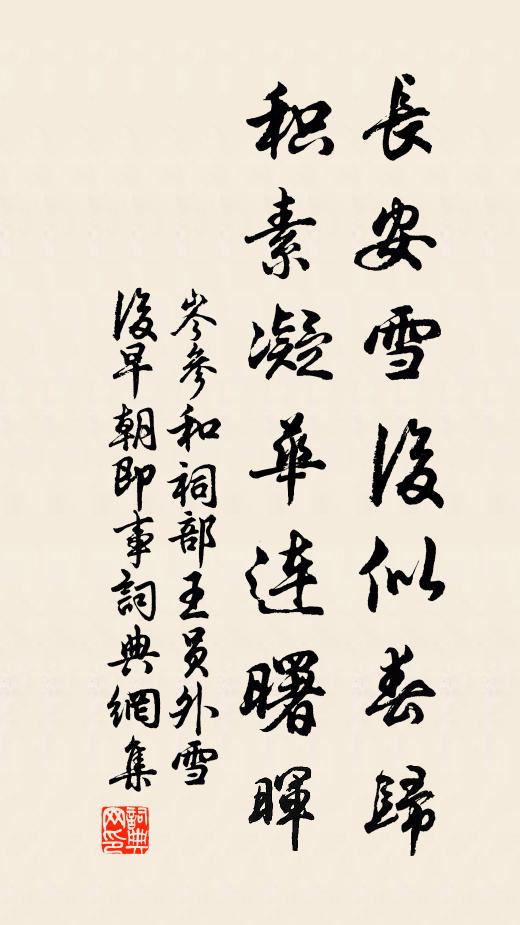 長安雪後似春歸
积素凝華連曙暉
岑參和祠部王员外雪
後早朝即事詞典網集
詞典
网印